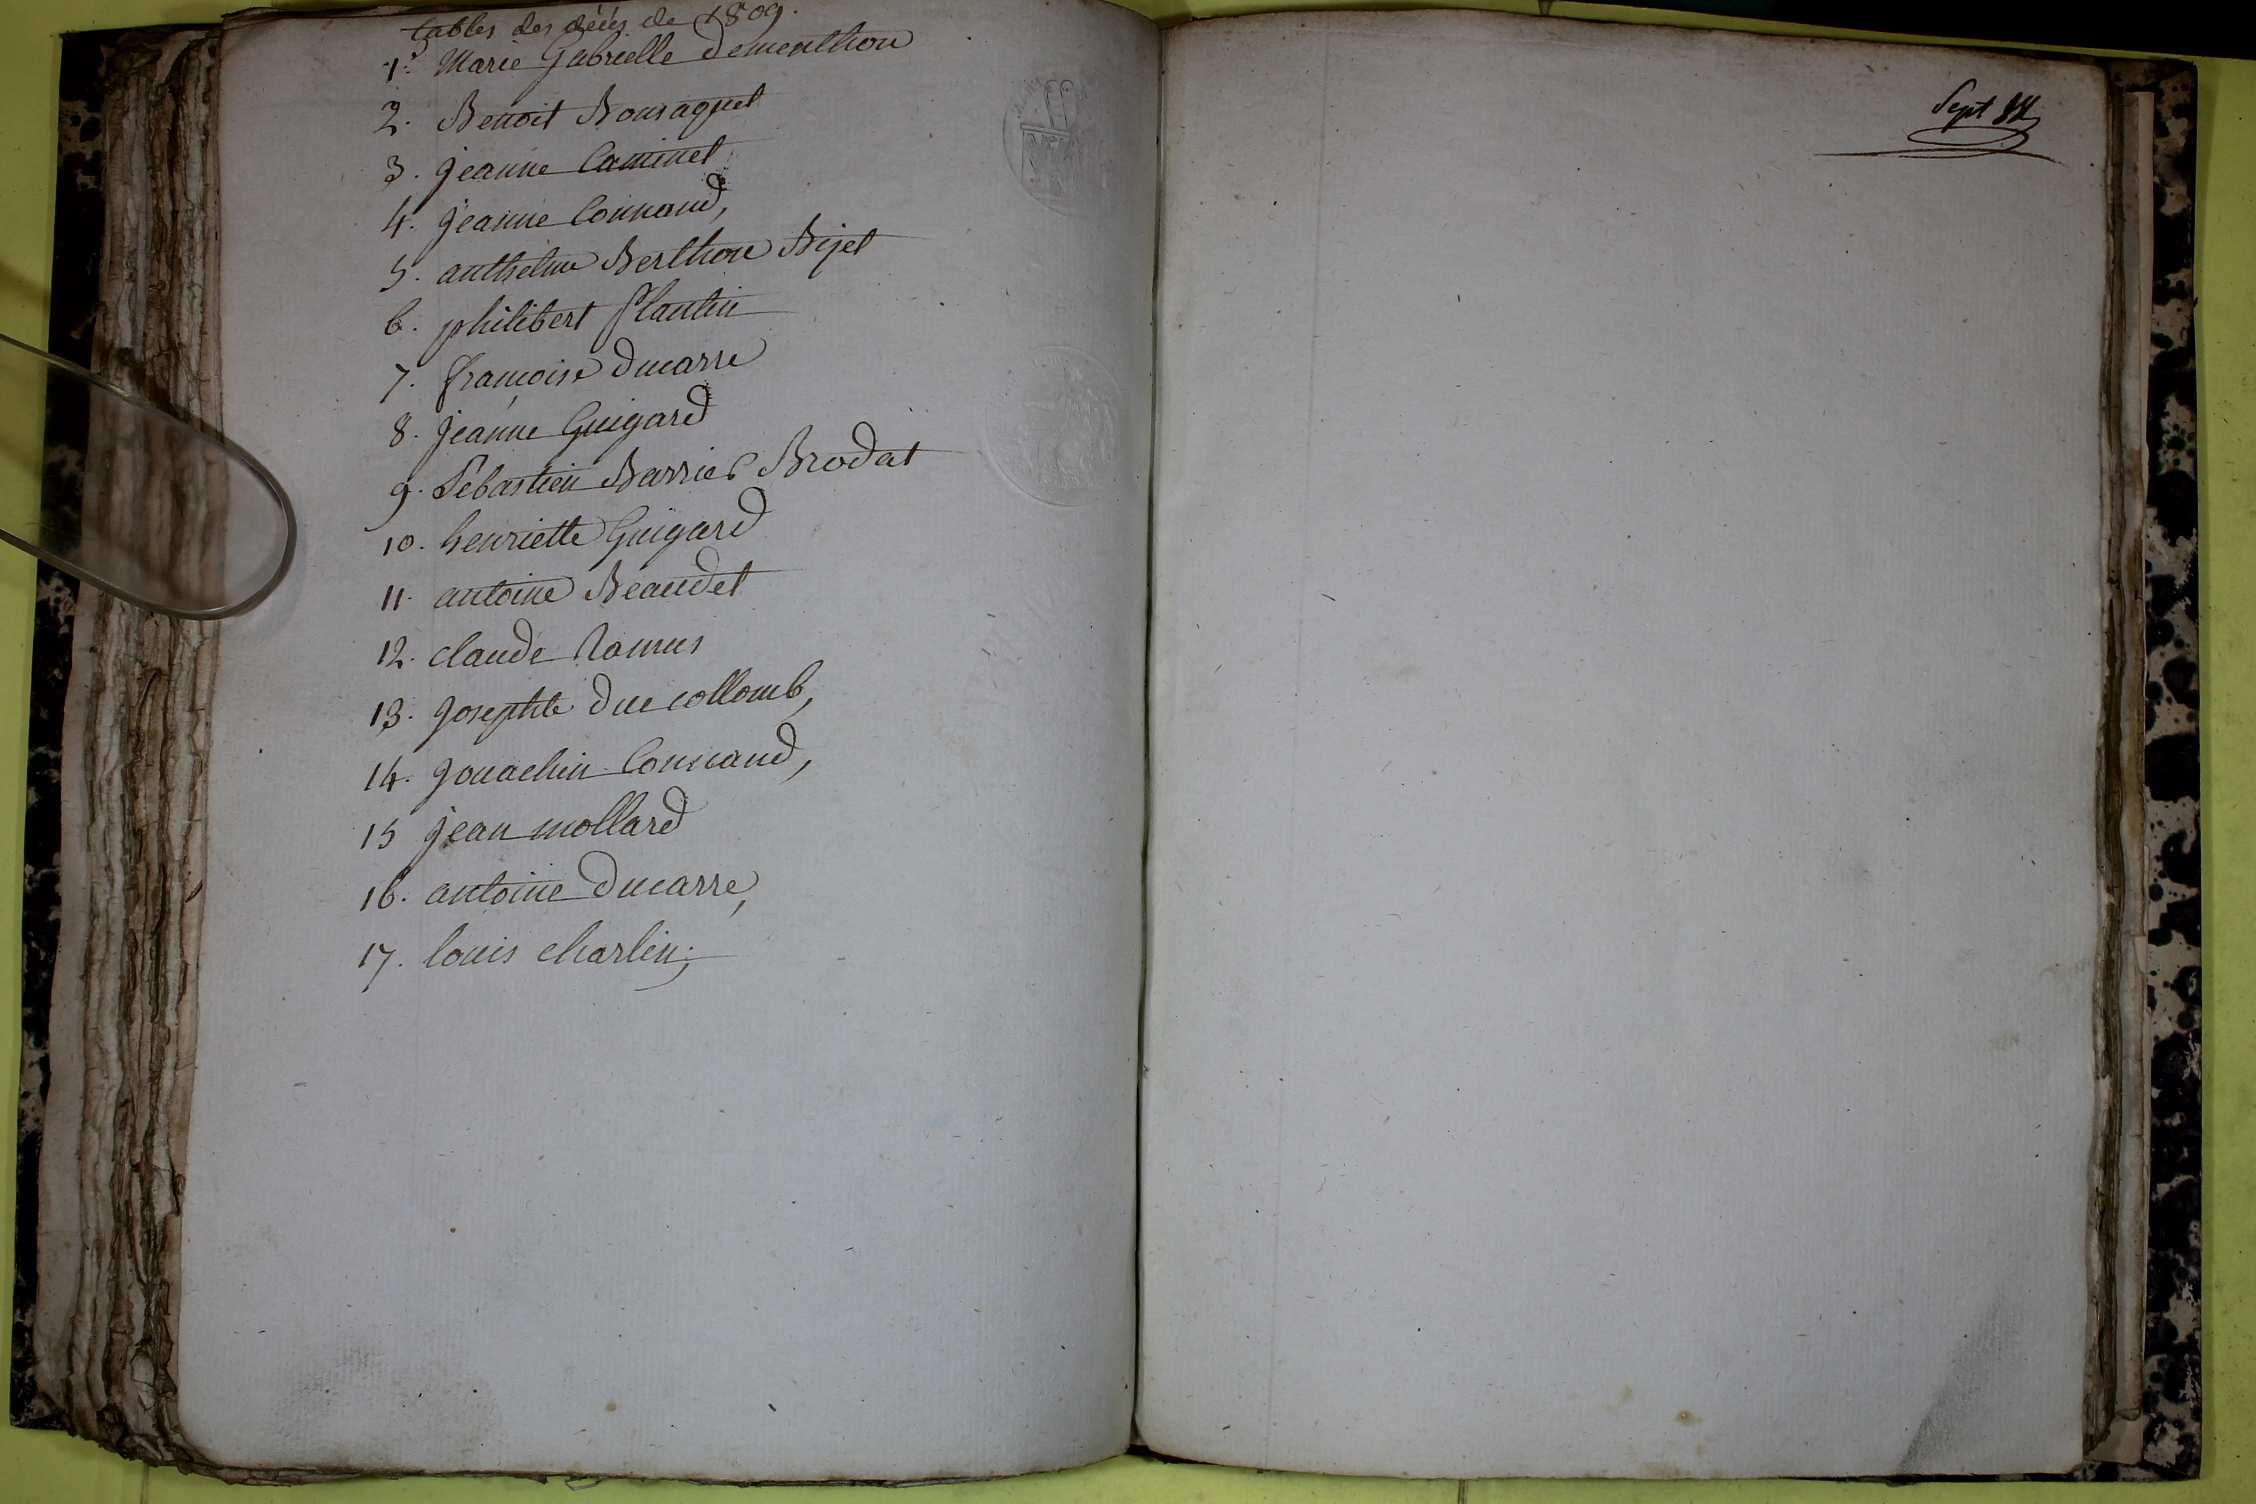 tables des décès de 1809.
1.° Marie Gabrielle dementhon
2. Benoit Bonsaquet
3. jeanne Caminet
4. jeanne Connand,
5. anthelme Berthon Bijet
6. philibert Plantin
7. françoise ducarre
8. jeanne Guigard
9. Sebastien Barrier Brodat
10. henriette Guigard
11. antoine Beaudet
12. claude Ramus
13. josephte duc collomb,
14. jouachin Connand,
15 jean mollard
16. antoine ducarre,
17. louis charlin;
Sept